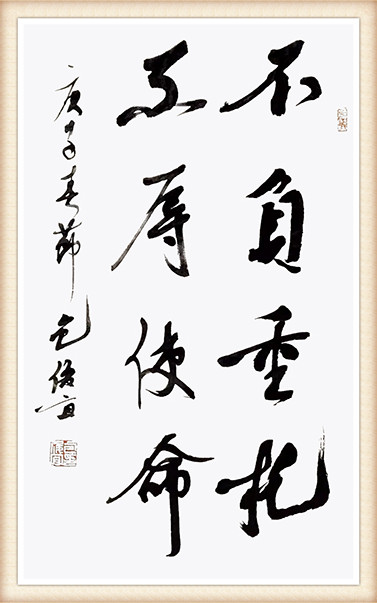 不負重托
不辱使命
庚子春節 包俊宜